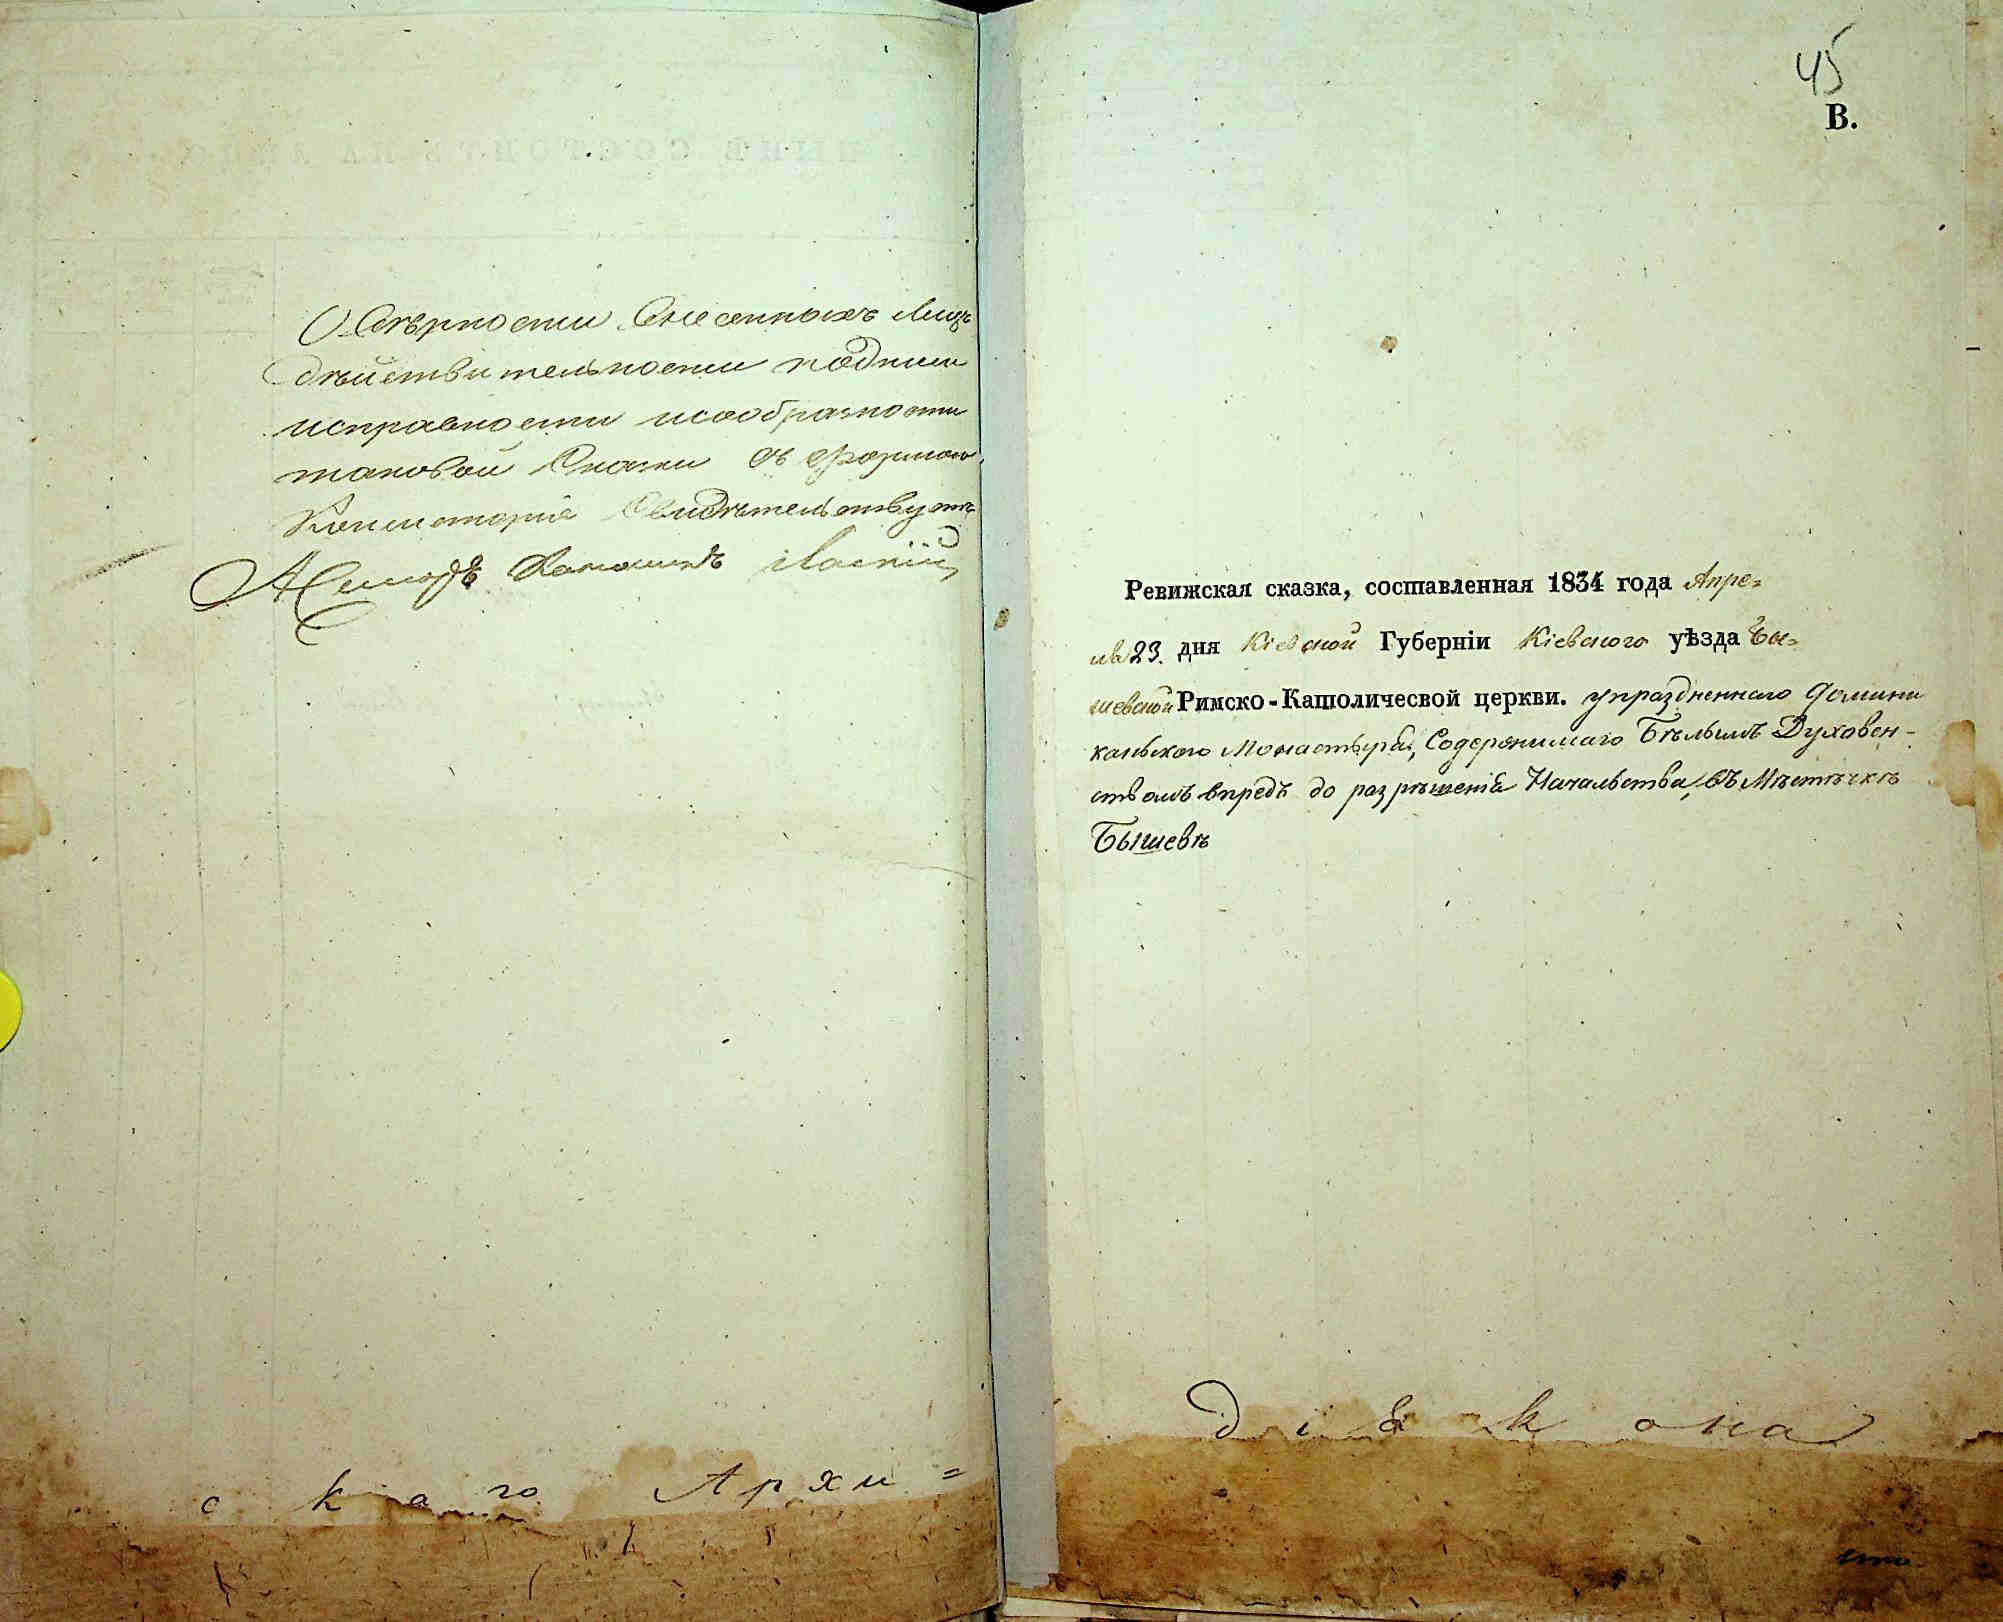 О вѣрности внесенныхъ лицъ
дѣйствительности
исправности исообразности
таковой Сказки съ формою
Консисторія Свидѣтельствуетъ
скаго Архи=
45
В.
Ревижская сказка, составленная 1834 года Апре=
ля 23. дня Кіевской Губерніи Кіевского уѣзда Бы=
шевской Римско-Католичесвой церкви. упраздненнаго Домини
каньского Монастыря, Содержимаго Бѣлымъ Духовен-
ствомъ впредь до разрѣшенія Начальства, въ Мѣстѣчкѣ
Бышевѣ
діякона